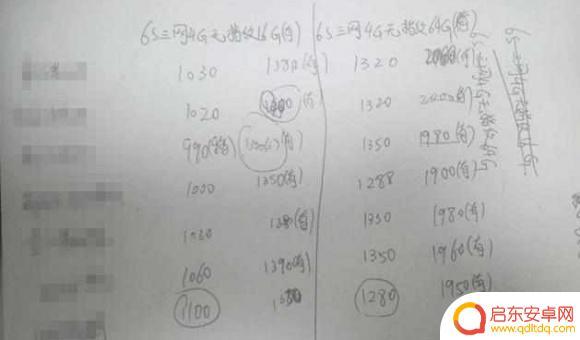 6S三网4G无指纹16G(有) 6S三网4G无指纹64G(有)
1030 1380(有) 1320 2000(有)
1020 (有) 1320 2000(有)
990 1350 1980(有)
1000 1350(有) 1288 1900(有)
1020 (有) 1350 1980(有)
1060 1390(有) 1350 1960(有)
1100 1280 1950(有)
启东安卓网
www.qdltdq.com